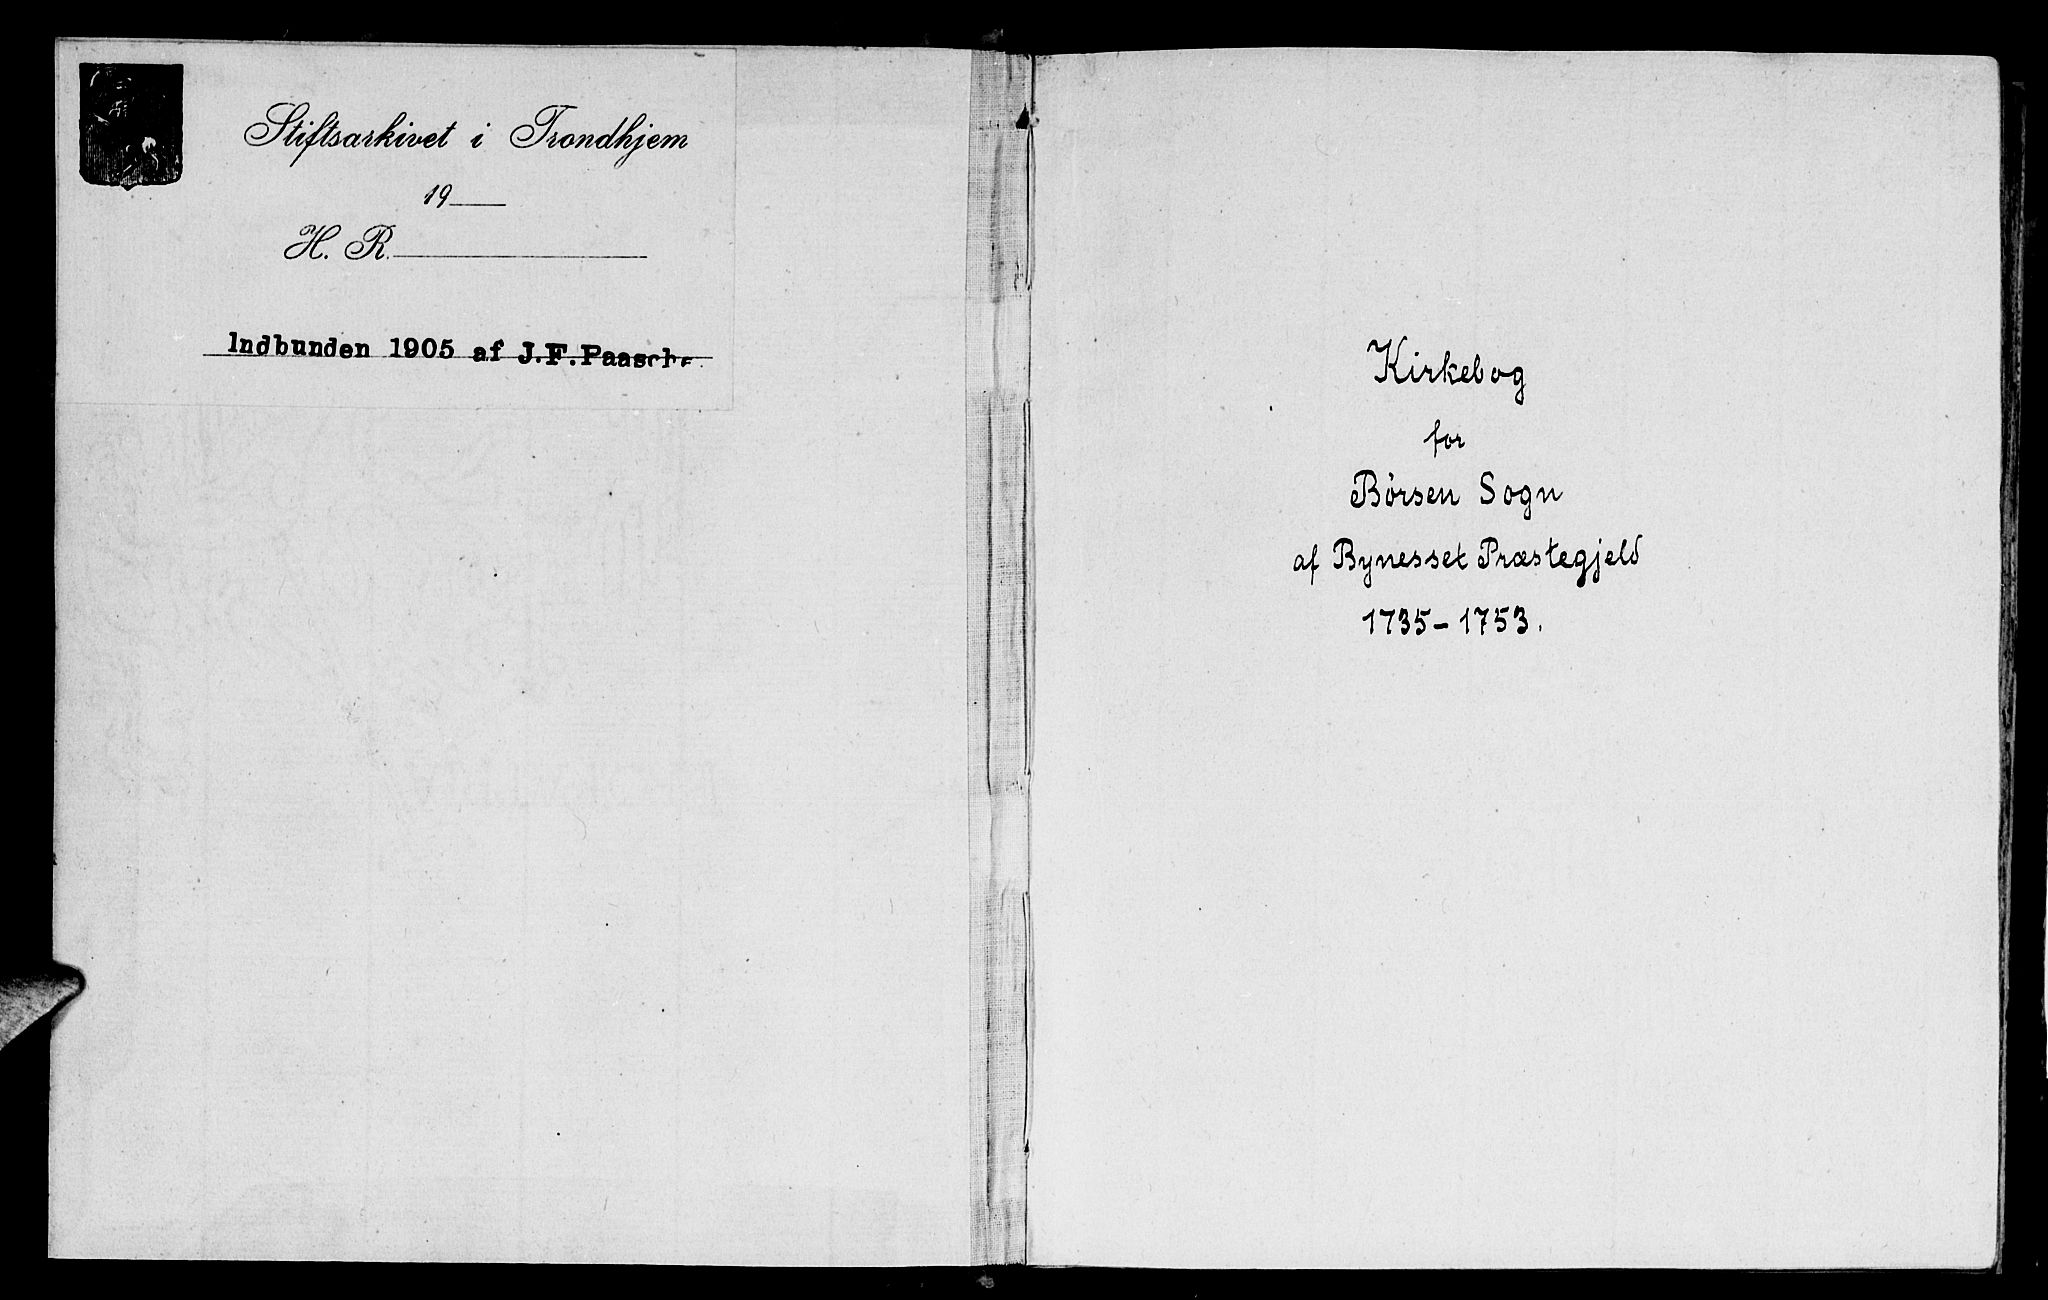 Stiftsarkivet i Trondhjem
19
H. R.
Indbunden 1905 af J.F.Paasche.
Kirkebog
for
Børsen Sogn
af Bynesset Præstegjeld
1735-1753.